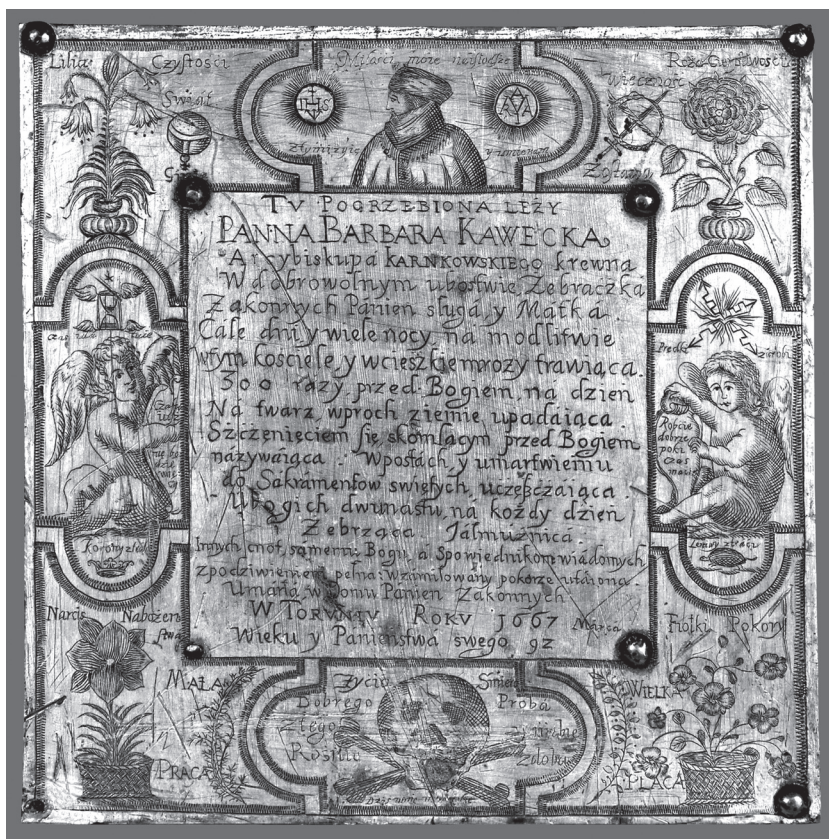 Lilia Czystości
Miłości może
Roża Cierpliwości
Świat
Wieczność
IHS
Złymi żyie
TV POGRZEBIONA LEŻY
PANNA BARBARA KAWECKA
Arcybiskupa KARNKOWSKIEGO krewna
W dobrowolnym ubostwie Zebraczka
Zakonnych Panien sługa y Matka
Całe dni y wiele nocy na modlitwie
wtym kosciele y wcieszkie mrozy trawiąca
300 razy przed Bogiem na dzień
Na twarz wproch ziemie upadaiąca
Szczenięciem się skomlącym przed Bogiem
nazywaiąca Wpostach y umartwieniu
do Sakramentow swiętych uczęszczaiąca
Ubogich dwunastu na kożdy dzień
Zebrząca Jałmużnicą
Innych cnot, samemu Bogu a Spowiednikom wiadomych
zpodziwieniem pełna: wzamiłowany pokorze utaiona
Umarła w Domu Panien Zakonnych
W TORUNIU ROKU 1667 Marca
Wieku y Panieństwa swego 92
Prędko
Robcie
dobrze
poki
czas
macie
Korony
Narcis Nabożeństwa
Fiołki Pokory
MAŁA
PRACA
Życie
Dobrego Proba
Złego
WIELKA
PŁACA